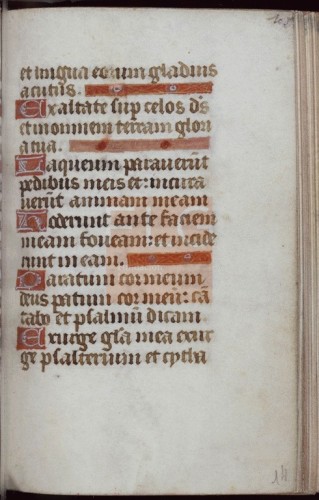 et lingua eorum gladius
acutus.
Exaltare sup celos ds
et in omnem terram glori
a tua.
Laqueum parauerūt
pedibus meis et: incurua
uerūt animam meam
Foderunt ante faciem
meam foueam: et incide
runt in eam.
Paratum cor meum
deus paratum cor meū: cā
tabo et psalmū dicam.
Exurge gła mea exur
ge psalterium et cytha